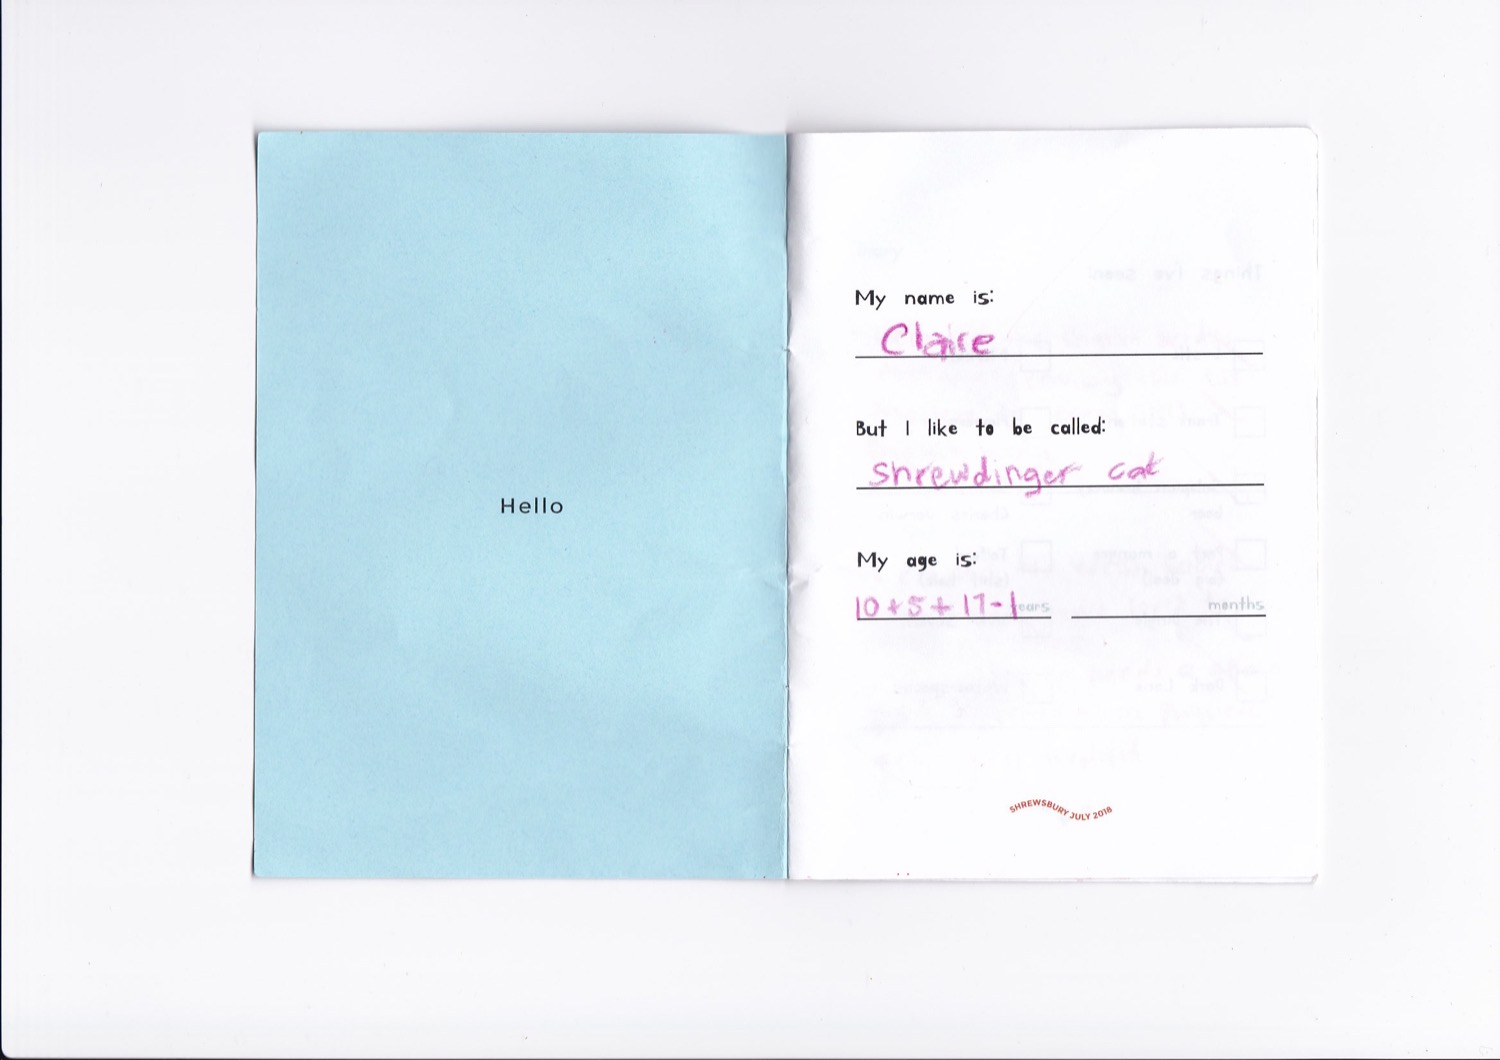 Hello
My name is:
Claire
But I like to be called:
Shrewdinger cat
My age is:
10 + 5 + 17 - 1 ears months
SHREWSBURY JULY 2018